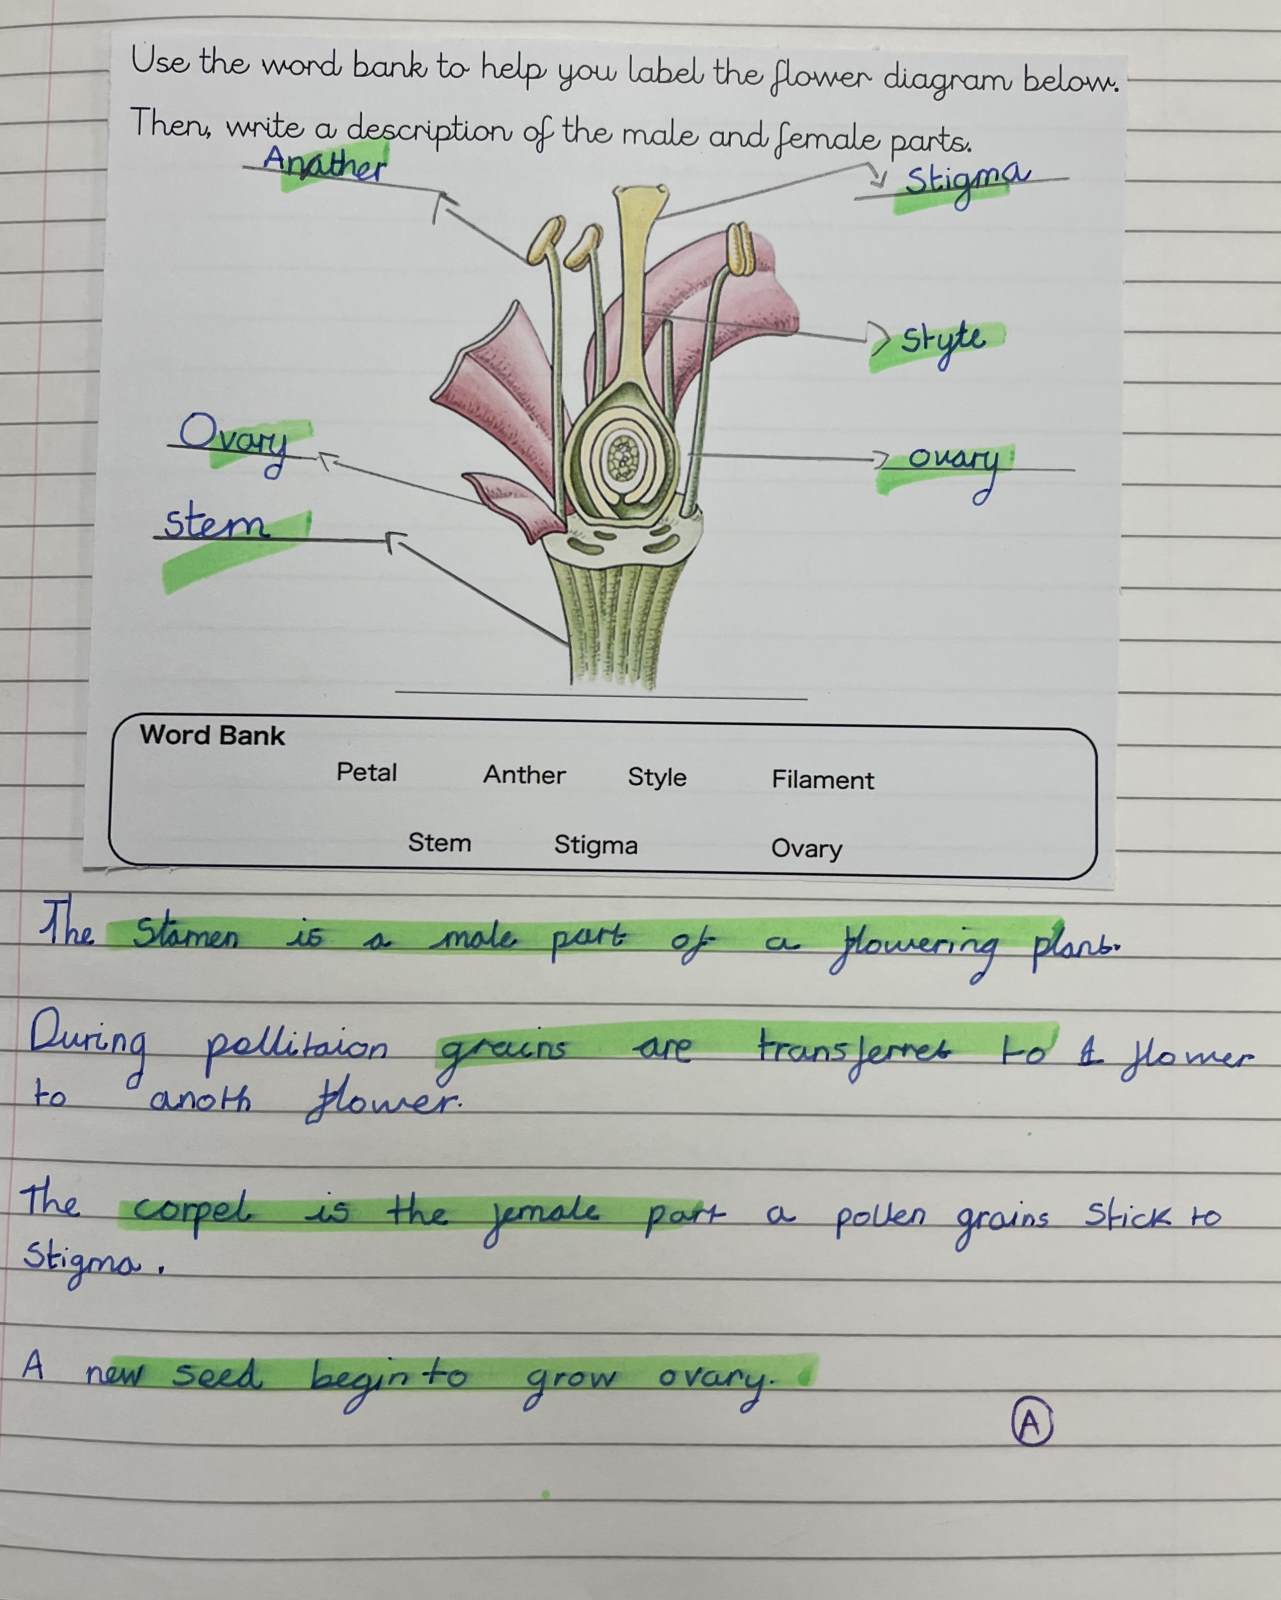 Use the word bank to help you label the flower diagram below.
Then, write a description of the male and female parts.
Anather
Stigma
Styte
Ovary
ovary
stem
Word Bank
Petal Anther Style Filament
Stem Stigma Ovary
The Stamen is a male part of a flowering plant.
During pollitaion grains are transferret to 1 flower
to anoth flower.
The corpel is the female part a pollen grains stick to
Stigma.
A new seed begin to grow ovary.
A